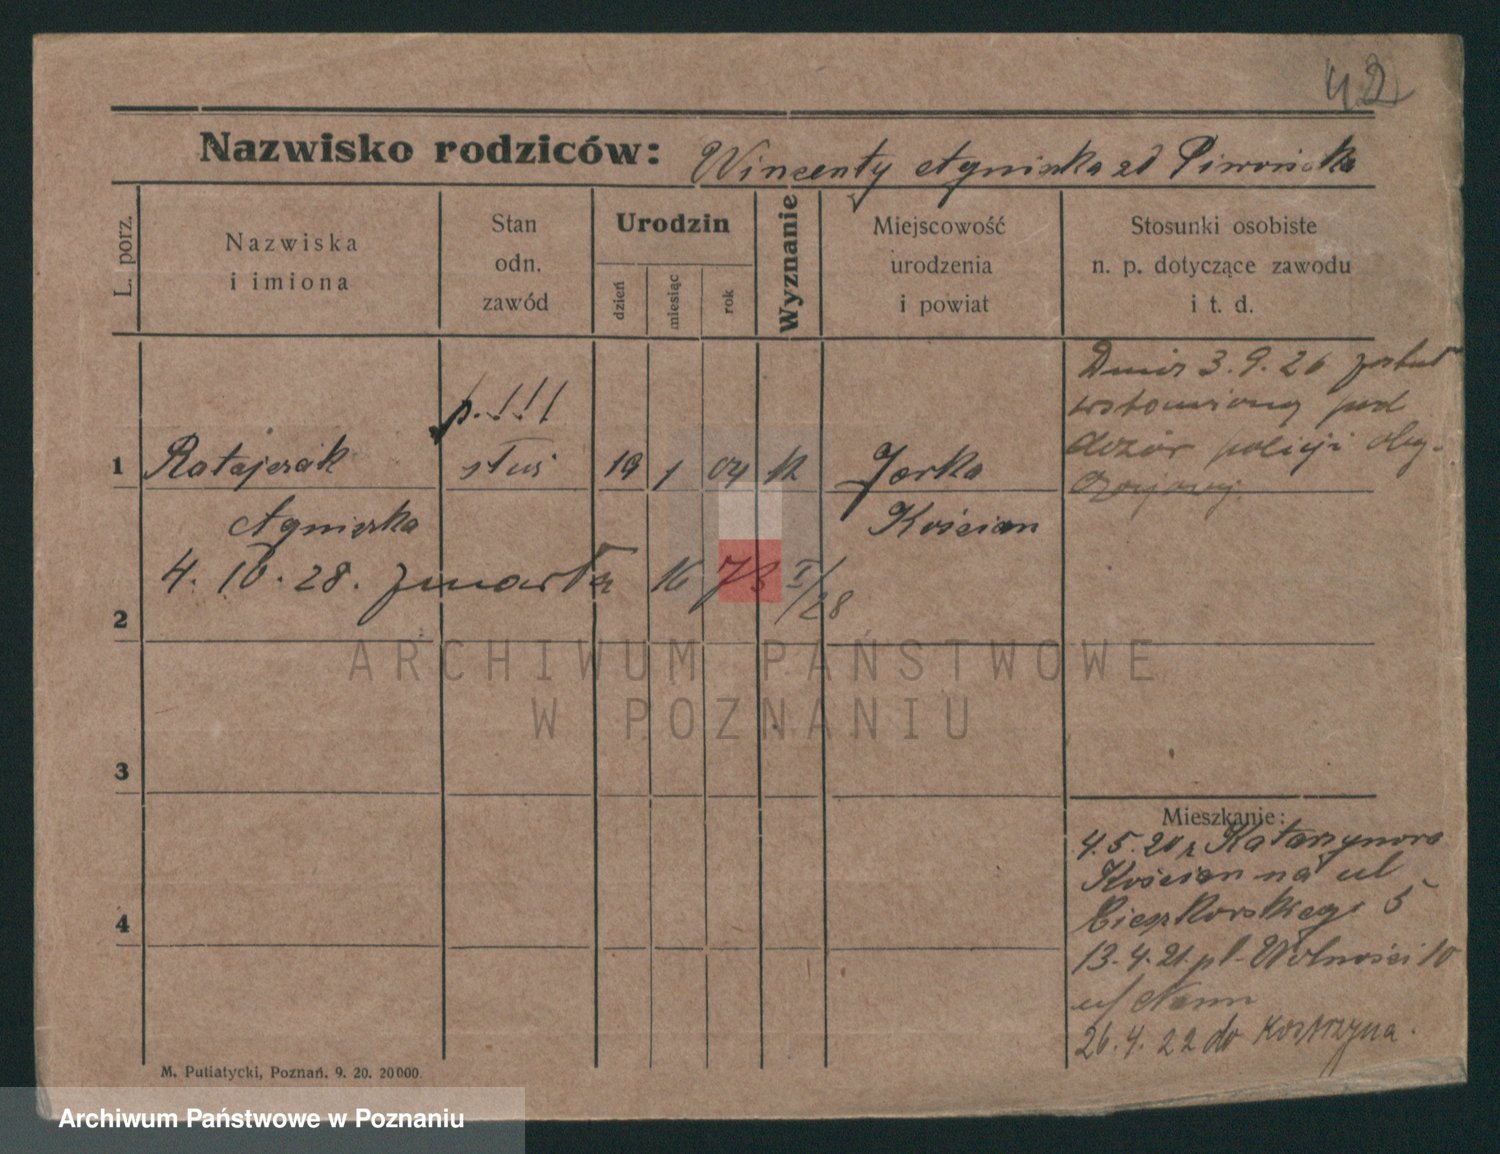 42
Nazwisko rodziców: Wincenty Agnieszka zd Piwońska
L. porz.
Nazwiska
i imiona
Stan
odn.
zawód
Urodzin
dzień
miesiąc
rok
Wyznanie
Miejscowość
urodzenia
i powiat
Stosunki osobiste
n. p. dotyczące zawodu
i t. d.
Dnia 3.9.26
pod
dozór policji
p. !!!
1 Ratajczak służ 19 1 04 Jerka
Agnieszka Kościan
4. 10. 28. zmarła 16 73 I/28
2
ARCHIWUM PAŃSTWOWE
W POZNANIU
3
Mieszkanie:
4.5.20 z Katarzynowa
Kościan na ul
Cieszkowskiego 5
4
13.4.21 pl. Wolności 10
u/
26.4.22 do Kostrzyna.
M. Putiatycki, Poznań. 9. 20. 20000.
Archiwum Państwowe w Poznaniu